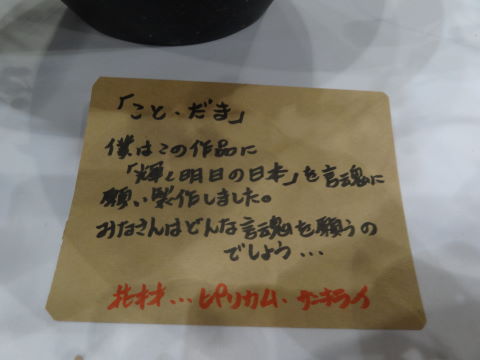 「こと・だま」
僕はこの作品に
「輝く明日の日本」を言魂に
願い製作しました。
みなさんはどんな言魂を願うの
でしょう・・・
ピリカム・サンキライ